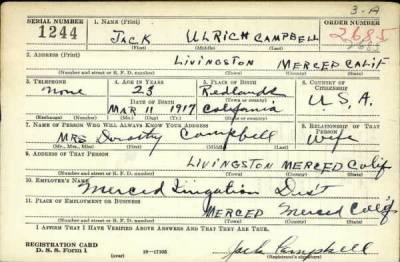 3-A
SERIAL NUMBER 1. NAME (Print) ORDER NUMBER
1244 JACK ULRICH CAMPBELL 2685
(First) (Middle) (Last)
2. ADDRESS (Print)
LIVINGSTON MERCED CALIF
(Number and street or R. F. D. number) (Town) (County) (State)
3. TELEPHONE 4. AGE IN YEARS 5. PLACE OF BIRTH 6. COUNTRY OF CITIZENSHIP
None 23 Redlands
DATE OF BIRTH (Town or county) U.S.A.
MAR 11 1917 California
(Exchange) (Number) (Mo.) (Day) (Yr.) (State or country)
7. NAME OF PERSON WHO WILL ALWAYS KNOW YOUR ADDRESS 8. RELATIONSHIP OF THAT PERSON
MRS Dorothy Campbell Wife
(Mr., Mrs., Miss) (First) (Middle) (Last)
9. ADDRESS OF THAT PERSON
LIVINGSTON MERCED Calif
(Number and street or R. F. D. number) (Town) (County) (State)
10. EMPLOYER'S NAME
Merced Irrigation Dist
11. PLACE OF EMPLOYMENT OR BUSINESS
MERCED Merced Calif
(Number and street or R. F. D. number) (Town) (County) (State)
I AFFIRM THAT I HAVE VERIFIED ABOVE ANSWERS AND THAT THEY ARE TRUE.
REGISTRATION CARD
D. S. S. Form 1 (over) Jack Campbell
(Registrant's signature)